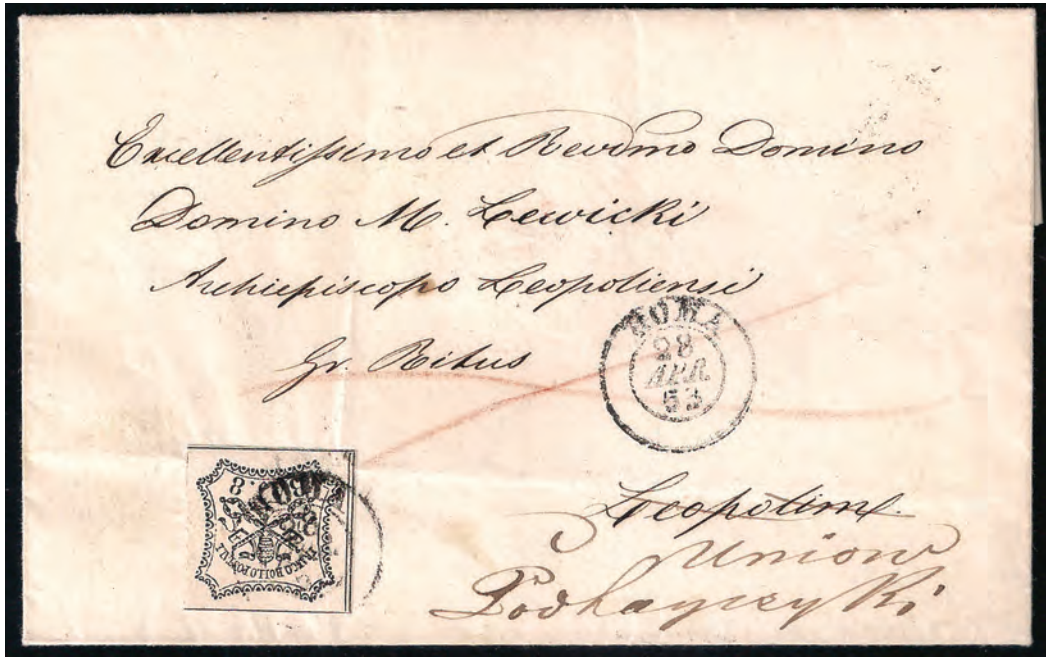 Excellentissimo et Revdmo Domino
Domino M. Lewicki
Archiepiscopo Leopoliensi
Gr. Ritus
ROMA
28
APR.
53
8
FRANCO BOLLO POSTALE
ROMA
Leopolim
Uniow
Podhayczyki